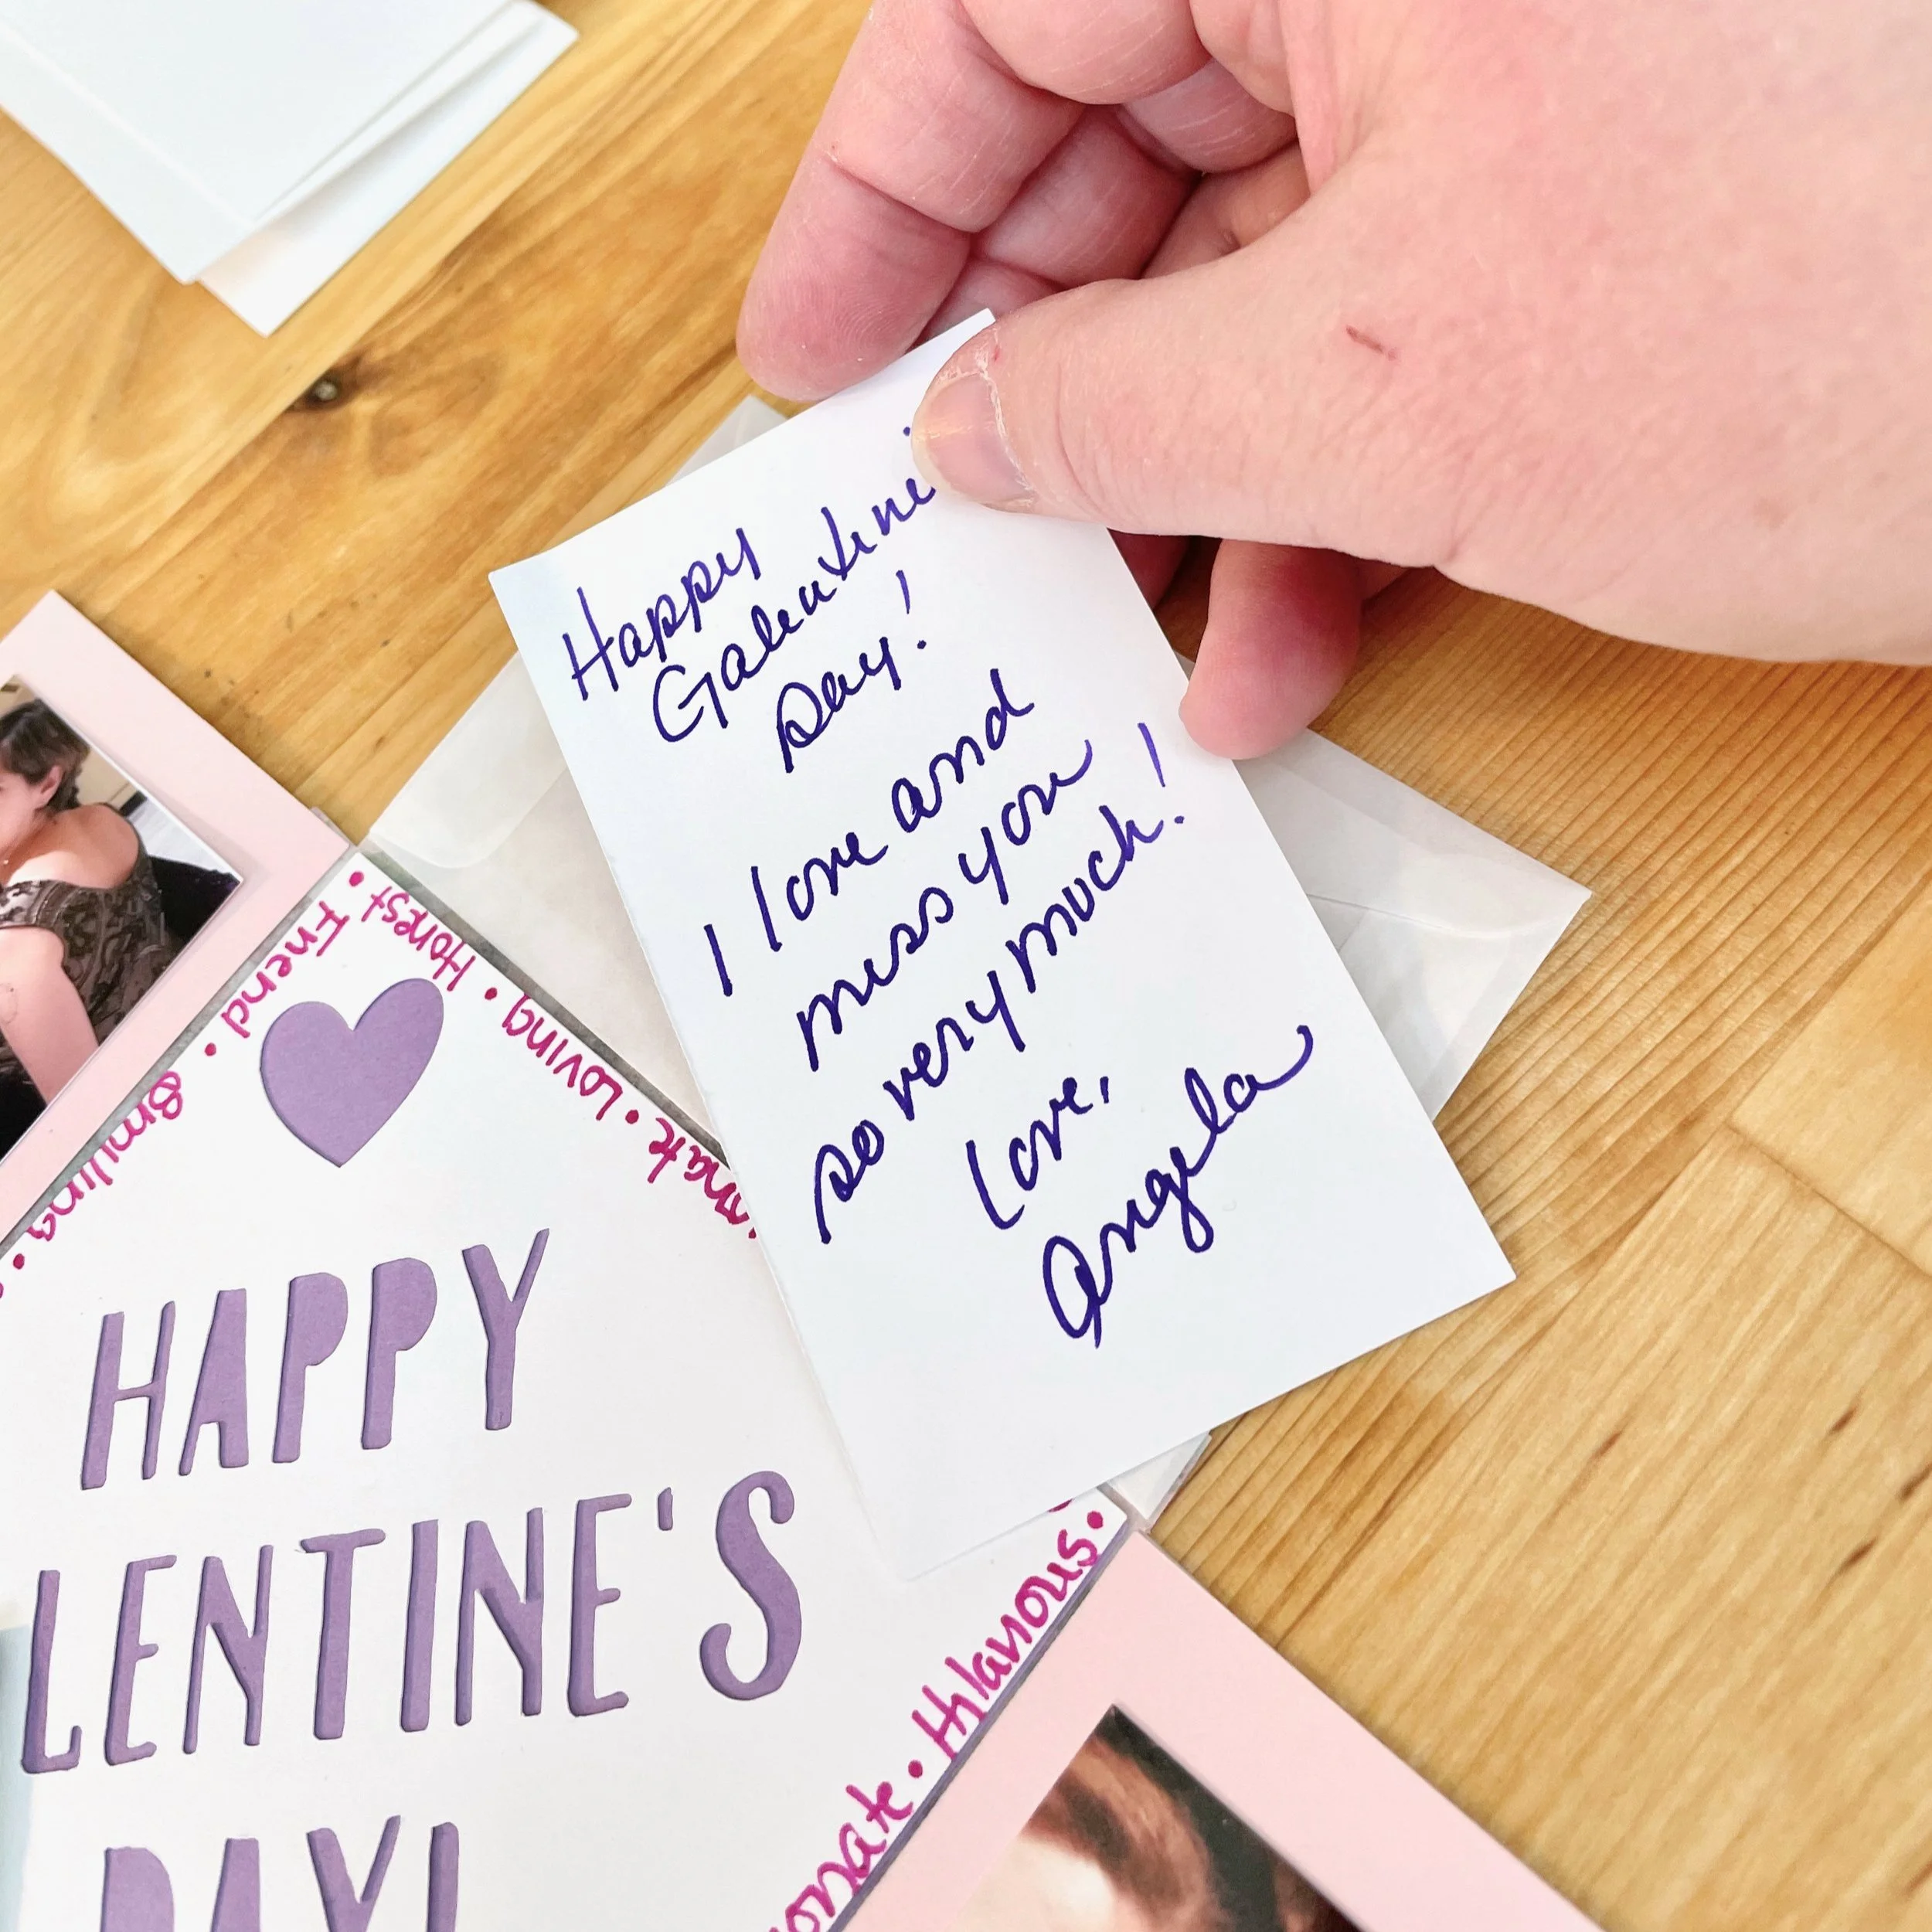 Happy
Galentine
Day!
I love and
miss you
so very much!
Love,
Angela
Friend.
Smiling.
• Honest
• Loving
HAPPY
LENTINE'S
DAY!
• Hilarious.